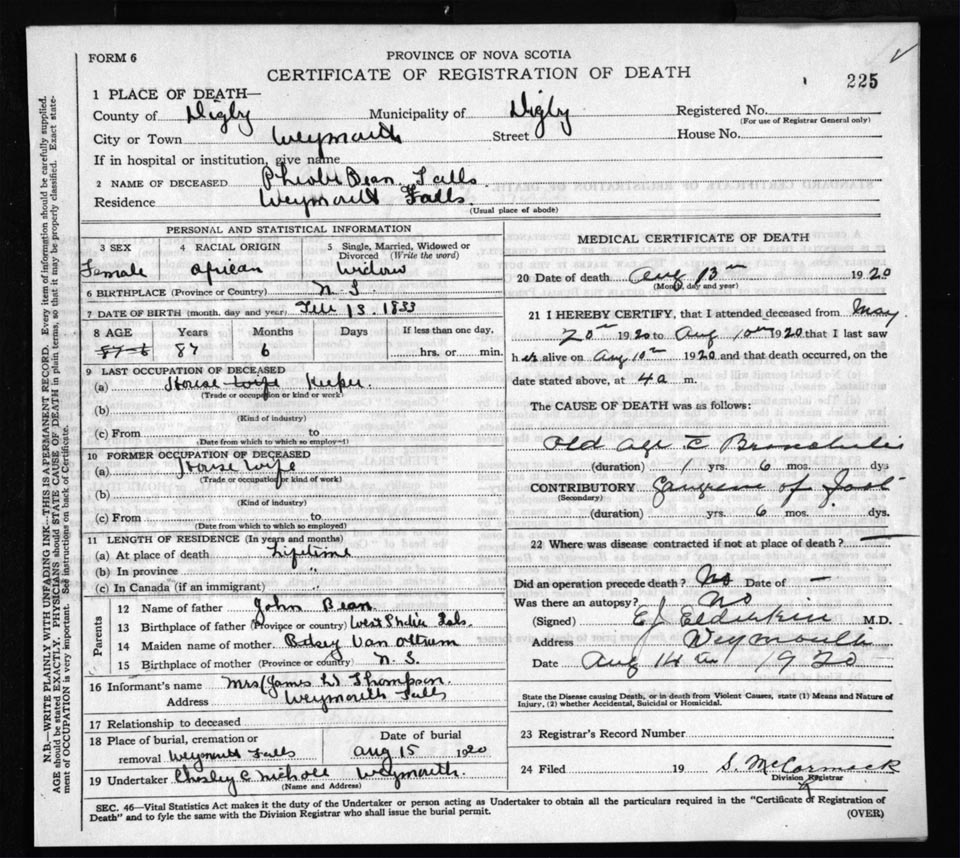 FORM 6
PROVINCE OF NOVA SCOTIA
CERTIFICATE OF REGISTRATION OF DEATH
225
1 PLACE OF DEATH—
County of Digby Municipality of Digby Registered No.
(For use of Registrar General only)
City or Town Weymouth Street House No.
If in hospital or institution, give name
2 NAME OF DECEASED Bean Falls
Residence Weymouth Falls.
(Usual place of abode)
PERSONAL AND STATISTICAL INFORMATION
3 SEX 4 RACIAL ORIGIN 5 Single, Married, Widowed or Divorced (Write the word)
Female African Widow
6 BIRTHPLACE (Province or Country) N. S.
7 DATE OF BIRTH (month, day and year) 13. 1833
8 AGE Years Months Days If less than one day,
87-6 87 6 hrs. or min.
9 LAST OCCUPATION OF DECEASED
(a) House Wife Keeper.
(Trade or occupation or kind or work)
(b)
(Kind of industry)
(c) From to
(Date from which to which so employed)
10 FORMER OCCUPATION OF DECEASED
(a) House Wife
(Trade or occupation or kind of work)
(b)
(Kind of industry)
(c) From to
(Date from which to which so employed)
11 LENGTH OF RESIDENCE (In years and months)
(a) At place of death Lifetime
(b) In province "
(c) In Canada (if an immigrant) "
Parents
12 Name of father John Bean
13 Birthplace of father (Province or country) West India Isls.
14 Maiden name of mother Betsey Van
15 Birthplace of mother (Province or country) N. S.
16 Informant's name Mrs (James W) Thompson.
Address Weymouth Falls
17 Relationship to deceased
18 Place of burial, cremation or Date of burial
removal Weymouth Falls Aug 15 1920
19 Undertaker Chesley C Nichol Weymouth.
(Name and Address)
MEDICAL CERTIFICATE OF DEATH
20 Date of death Aug 13th 1920
(Month, day and year)
21 I HEREBY CERTIFY, that I attended deceased from May
20th 1920 to Aug 10th 1920 that I last saw
her alive on Aug 10th 1920 and that death occurred, on the
date stated above, at 4 a m.
The CAUSE OF DEATH was as follows:
Old age c Bronchitis
(duration) 1 yrs. 6 mos. dys
CONTRIBUTORY Gangrene of foot
(Secondary)
(duration) yrs. 6 mos. dys.
22 Where was disease contracted if not at place of death? —
Did an operation precede death? No Date of —
Was there an autopsy? No
(Signed) E J Elderkin M.D.
Address Weymouth
Date Aug 14th 1920
State the Disease causing Death, or in death from Violent Causes, state (1) Means and Nature of
Injury, (2) whether Accidental, Suicidal or Homicidal.
23 Registrar's Record Number
24 Filed 19 S. McCormack
Division Registrar
SEC. 46—Vital Statistics Act makes it the duty of the Undertaker or person acting as Undertaker to obtain all the particulars required in the "Certificate of Registration of
Death" and to fyle the same with the Division Registrar who shall issue the burial permit.
(OVER)
N.B.—WRITE PLAINLY WITH UNFADING INK—THIS IS A PERMANENT RECORD. Every item of information should be carefully supplied.
AGE should be stated EXACTLY. PHYSICIANS should STATE CAUSE OF DEATH in plain terms, so that it may be properly classified. Exact state-
ment of OCCUPATION is very important. See instruction on back of Certificate.